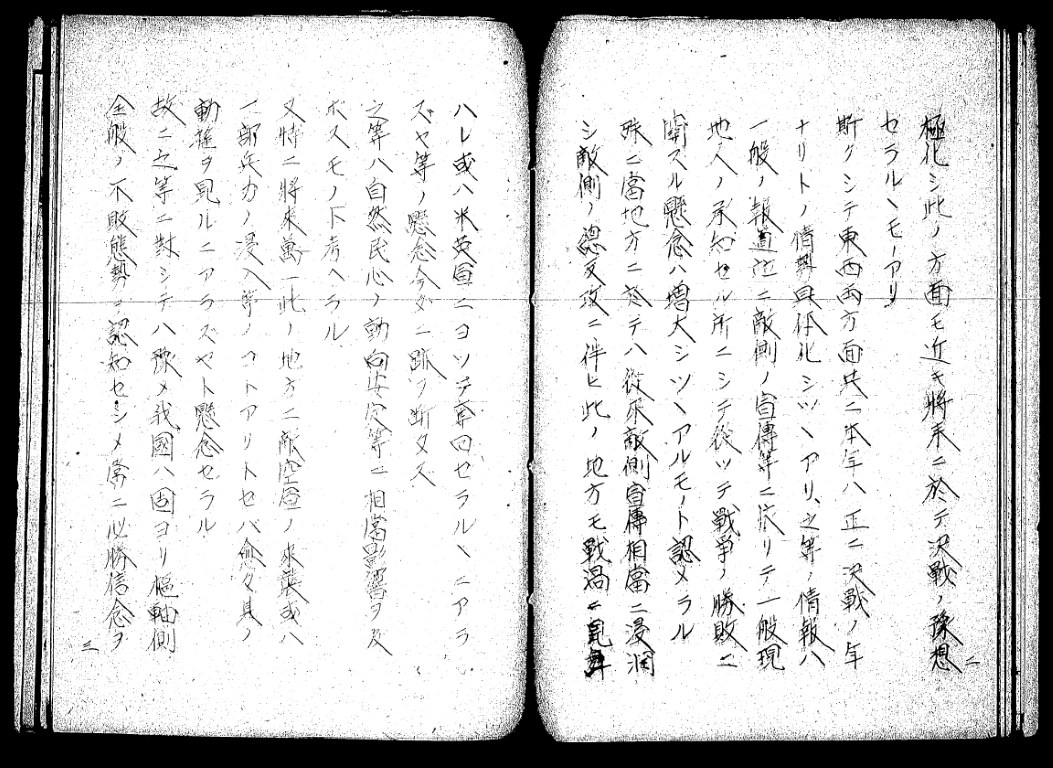 極化シ此ノ方面モ近キ將来ニ於テ決戰ノ豫想
セラルヽモノアリ
斯クシテ東西両方面共ニ本年ハ正ニ決戰ノ年
ナリトノ情勢具体化シツヽアリ、之等ノ情報ハ
一般ノ報道竝ニ敵側ノ宣傳等ニ依リテ一般現
地人ノ承知セル所ニシテ従ツテ戰爭ノ勝敗ニ
関スル懸念ハ増大シツヽアルモノト認メラル
殊ニ當地方ニ於テハ従来敵側宣傳相當ニ浸潤
シ敵側ノ總反攻ニ伴ヒ此ノ地方モ戰渦ニ見舞
二
ハレ或ハ米英軍ニヨツテ奪回セラルヽニアラ
ズヤ等ノ懸念今尚ニ跡ヲ断タズ
之等ハ自然民心ノ動向安定等ニ相當影響ヲ及
ボスモノト考ヘラル
又特ニ將来萬一此ノ地方ニ敵空軍ノ来襲或ハ
一部兵力ノ浸入等ノコトアリトセバ愈々其ノ
動揺ヲ見ルニアラズヤト懸念セラル
故ニ之等ニ対シテハ豫メ我國ハ固ヨリ樞軸側
全般ノ不敗態勢ヲ認知セシメ常ニ必勝信念ヲ
三